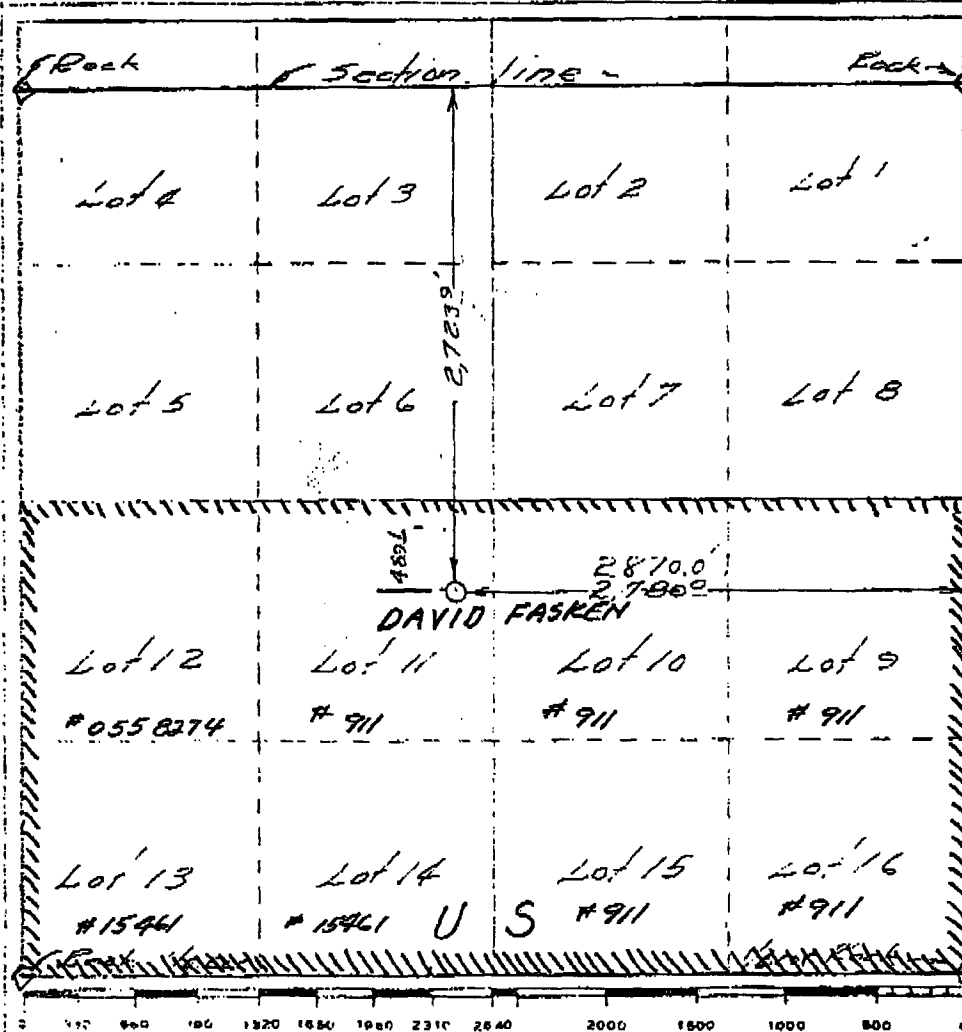 Rock Section line Rock
Lot 4 Lot 3 Lot 2 Lot 1
2,723.9'
Lot 5 Lot 6 Lot 7 Lot 8
2870.0'
2,780.0
DAVID FASKEN
Lot 12 Lot 11 Lot 10 Lot 9
#0558274 #911 #911 #911
Lot 13 Lot 14 Lot 15 Lot 16
#15461 #15461 U S #911 #911
1320 1650 1980 2310 2640 2000 1500 1000 500